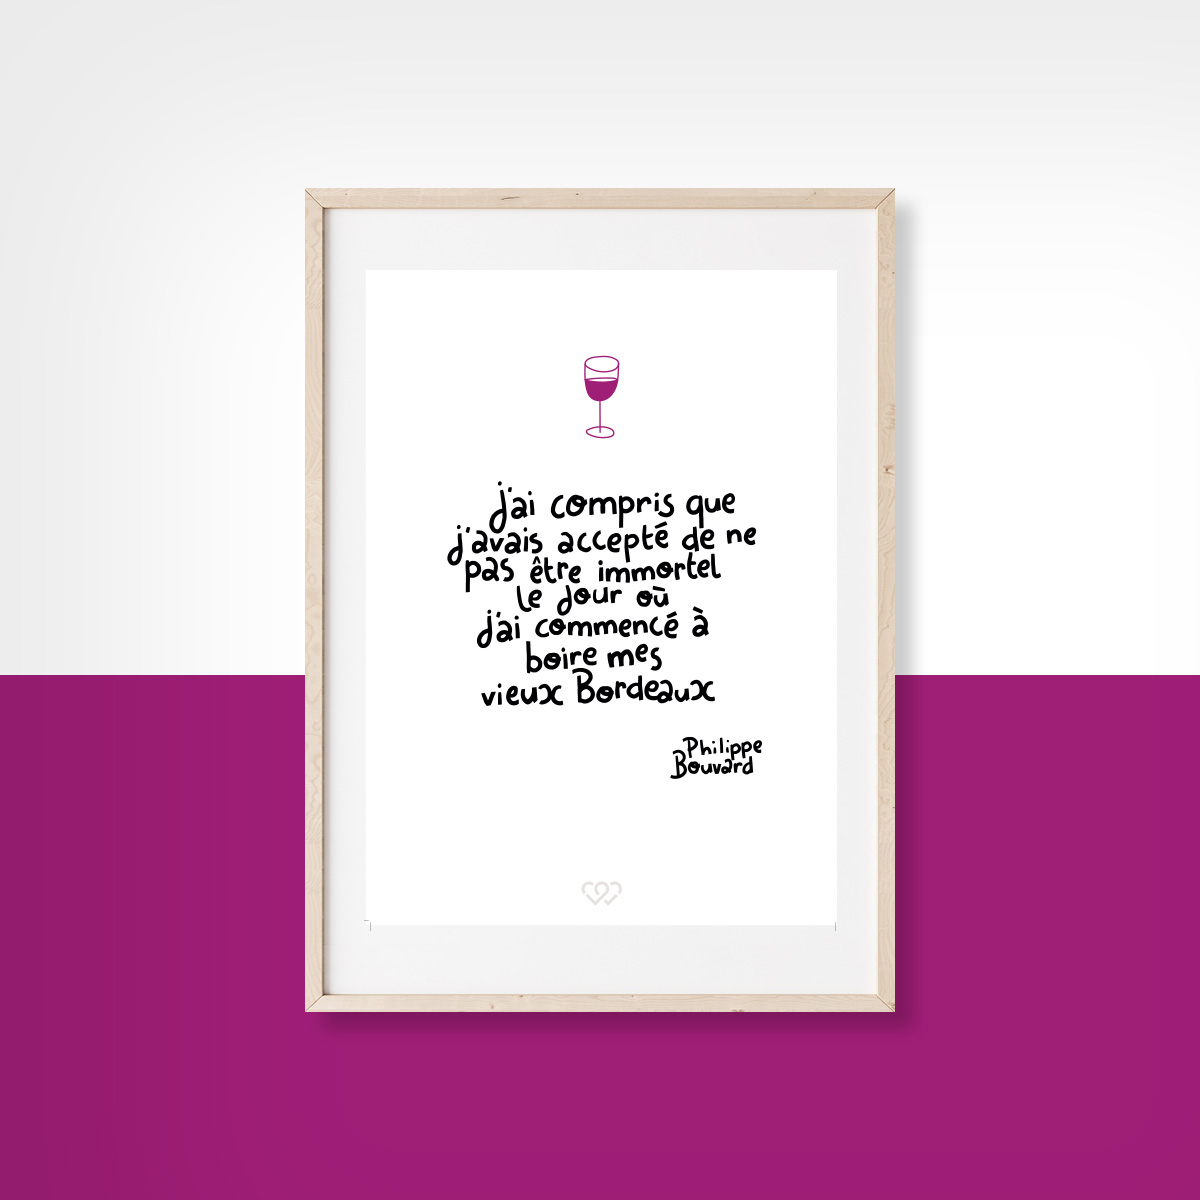 j'ai compris que
j'avais accepté de ne
pas être immortel
le jour où
j'ai commencé à
boire mes
vieux Bordeaux
Philippe
Bouvard